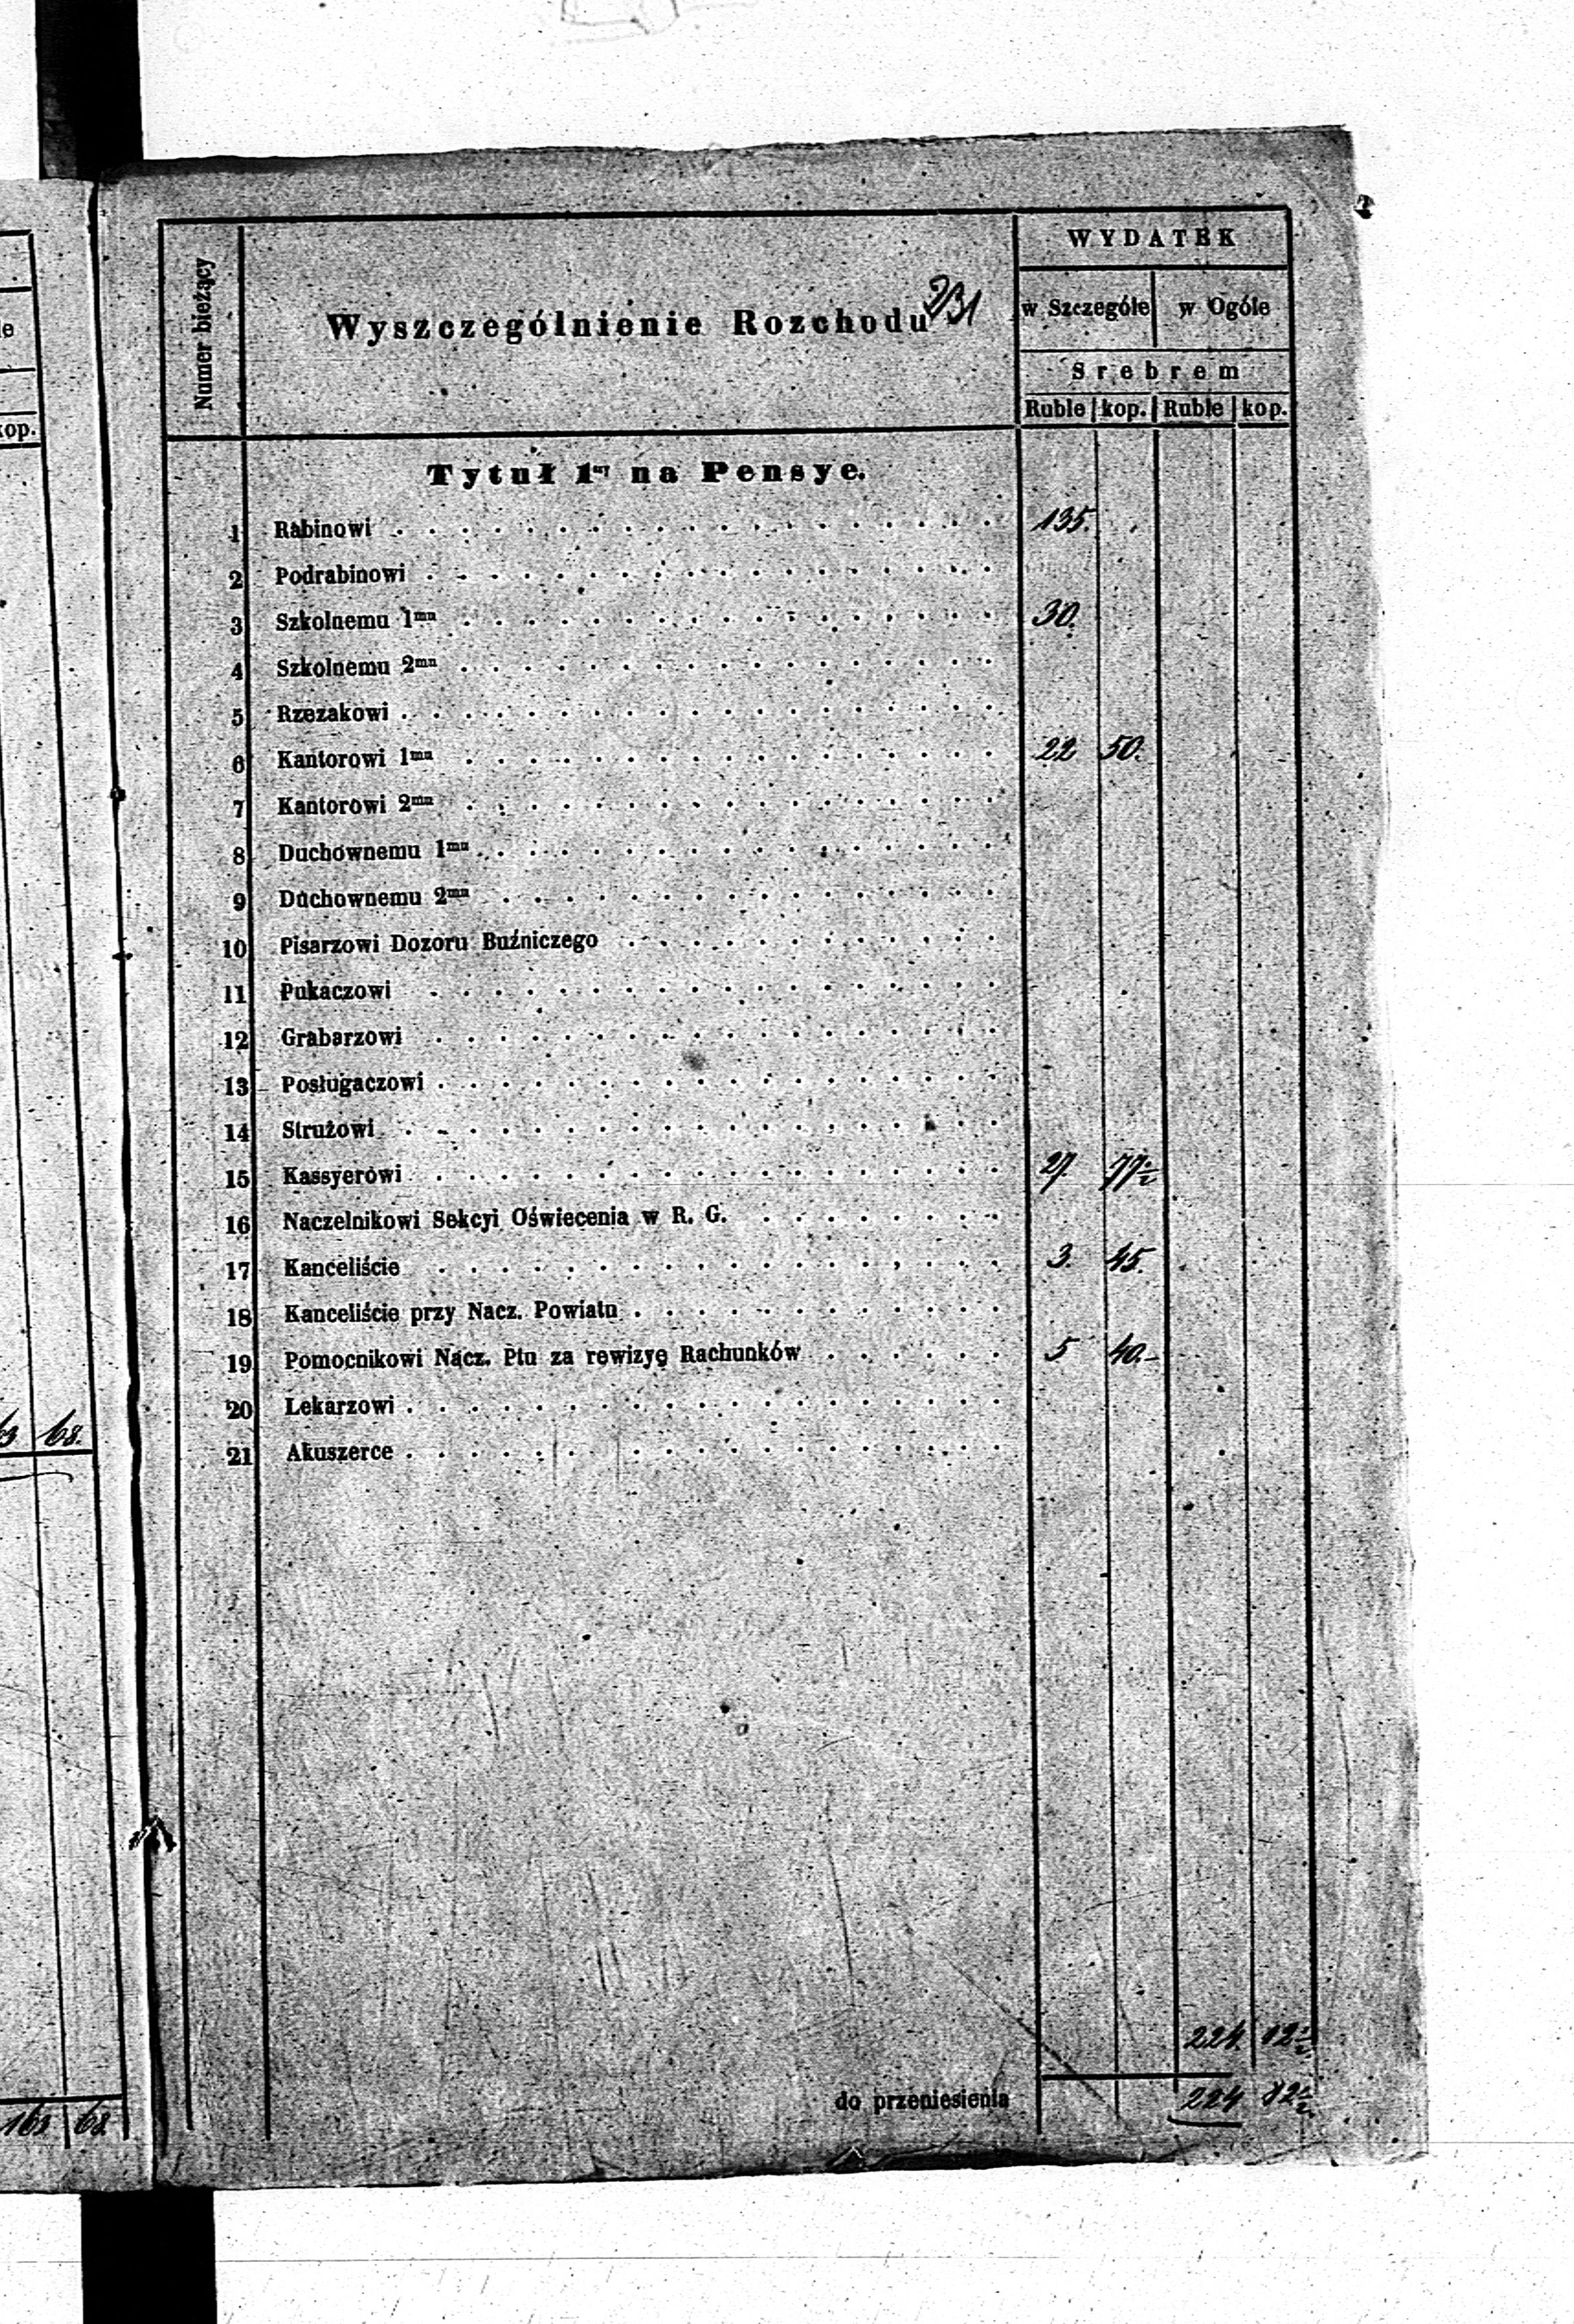 Numer bieżący
Wyszczególnienie Rozchodu
231
WYDATEK
w Szczególe w Ogóle
Srebrem
Ruble kop. Ruble kop.
kop.
Tytuł 1szy na Pensye.
1 Rabinowi 135.
2 Podrabinowi
3 Szkolnemu 1mu 30.
4 Szkolnemu 2mu
5 Rzezakowi
6 Kantorowi 1mu 22 50.
7 Kantorowi 2mu
8 Duchownemu 1mu
9 Duchownemu 2mu
10 Pisarzowi Dozoru Buźniczego
11 Pukaczowi
12 Grabarzowi
13 Posługaczowi
14 Strużowi
15 Kassyerowi 27 77½
16 Naczelnikowi Sekcyi Oświecenia w R. G.
17 Kanceliście 3. 45.
18 Kanceliście przy Nacz. Powiatu
19 Pomocnikowi Nacz. Ptu za rewizyę Rachunków 5 40.-
20 Lekarzowi
21 Akuszerce
68.
224. 12½
do przeniesienia 224 12½
163 68